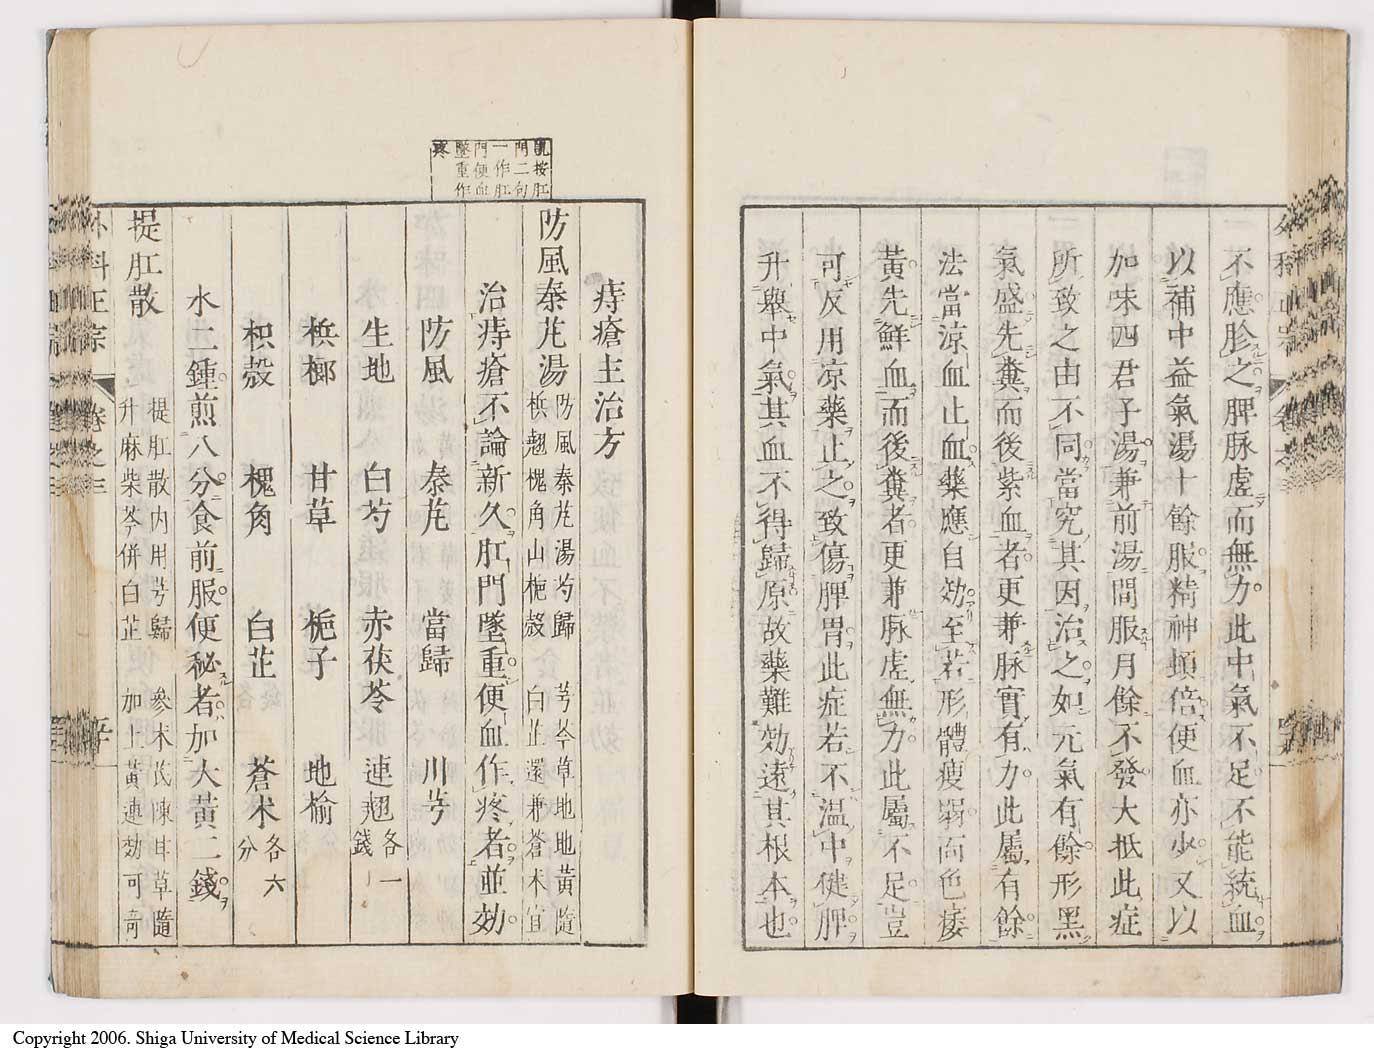 不應胗之脾脉虛而無力此中氣不足不能統血
以補中益氣湯十餘服精神頓倍便血亦少又以
加味四君子湯兼前湯間服月餘不發大抵此症
所致之由不同當究其因治之如元氣有餘形黑
氣盛先糞而後紫血者更兼脉實有力此屬有餘
法當涼血止血藥應自効至若形體瘦弱面色痿
黃先鮮血而後糞者更兼脉虛無力此屬不足豈
可反用涼藥止之致傷脾胃此症若不溫中健脾
升舉中氣其血不得歸原故藥難効遠其根本也
凱按肛
門二句
一作肛
門便血
墜重作
疼
痔瘡主治方
防風秦艽湯
防風秦艽湯芍歸 芎芩草地地黃隨
梹翹槐角山梔殼 白芷還兼蒼朮宜
治痔瘡不論新久肛門墜重便血作疼者並効
防風 秦艽 當歸 川芎
生地 白芍 赤茯苓 連翹各一錢
梹榔 甘草 梔子 地榆
枳殼 槐角 白芷 蒼朮各六分
水二鍾煎八分食前服便秘者加大黃二錢
提肛散
提肛散內用芎歸 參朮芪陳甘草隨
升麻柴芩併白芷 加上黃連効可奇
外科正宗 卷之三